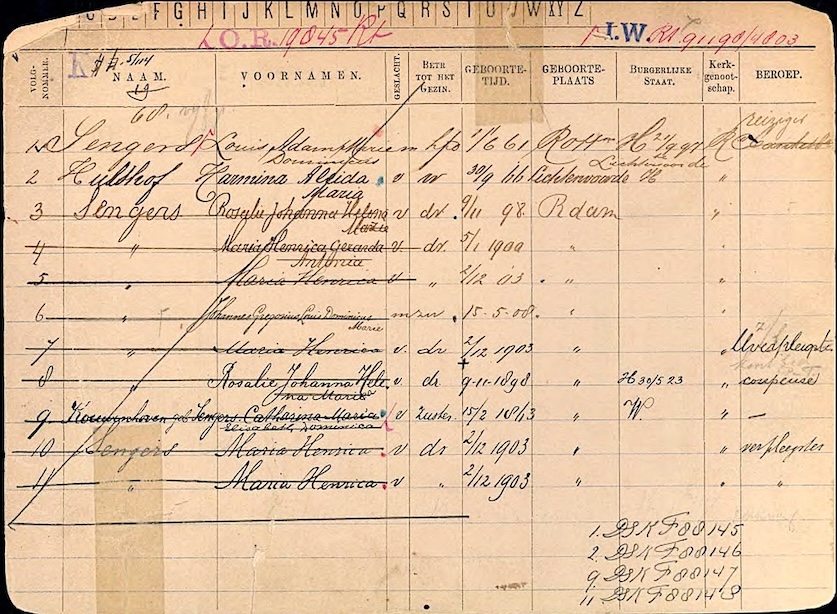 C D E F G H I J K L M N O P Q R S T U V W XY Z
O.R. 19845 Rt I.W. Rt 91190/4803
K 5/14
VOLG-NOMMER. NAAM. VOORNAMEN. GESLACHT. BETR TOT HET GEZIN. GEBOORTE-TIJD. GEBOORTE-PLAATS BURGERLIJKE STAAT. Kerk-genoot-schap. BEROEP.
19
68.
reiziger
1 Sengers Louis Adam Marie m hfd 1/6 61 Rottm H 21/9 97 R
Dominicus Lichtenvoorde
2 Hulshof Harmina Aleida v vr 30/9 66 Lichtenvoorde H "
Maria
3 Sengers Rosalie Johanna Helena v dr. 9/11 98. Rdam "
Marie
4 " Maria Henrica Gerarda v dr. 5/1 1900 " "
Antonia
5 " Maria Henrica v " 2/12 03 " "
6 " Johannes Gregorius Louis Dominicus m zn 15-5-08. " "
Marie
7 " Maria Henrica v. dr 2/12 1903 " "
8 Rosalie Johanna Hele v. dr. 9-11-1898 " H 30/5 23 " coupeuse
na Maria
9 Kouwenhoven geb. Sengers. Catharina Maria v zuster. 15/2 1843 " W. " —
Elisabeth Dominica
10 Sengers Maria Henrica v dr 2/12 1903 " " verpleegster
11 " Maria Henrica v " 2/12 1903 " " "
1. DSK F 88145
2. DSK F 88146
9 DSK F 88147
11 DSK F 88148